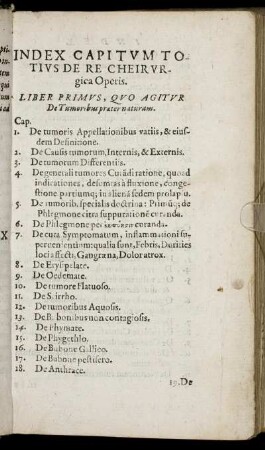 INDEX CAPITVM TO-
TIVS DE RE CHEIRVR-
gica Operis.
LIBER PRIMVS, QVO AGITVR
De Tumoribus præter naturam.
Cap.
1. De tumoris Appellationibus variis, & eius-
dem Definitione.
2. De Causis tumorum, Internis, & Externis.
3. De tumorum Differentiis.
4. De generali tumores Curãdi ratione, quoad
indicationes, desumtas à fluxione, conge-
stione partiumq; in alienã sedem prolapsu.
5. De tumorib. specialis doctrina: Primùq; de
Phlegmone citra suppurationẽ curanda.
6. De Phlegmone per curanda.
7. De cura Symptomatum, inflammationi su-
peruenientium: qualia sunt, Febris, Durities
loci affecti, Gangræna, Dolor atrox.
8. De Erysipelate.
9. De Oedemate.
10. De tumore Flatuoso.
11. De Scirrho.
12. De tumoribus Aquosis.
13. De Bubonibus non contagiosis.
14. De Phymate.
15. De Phygethlo.
16. De Bubone Gallico.
17. De Bubone pestifero.
18. De Anthrace.
19. De